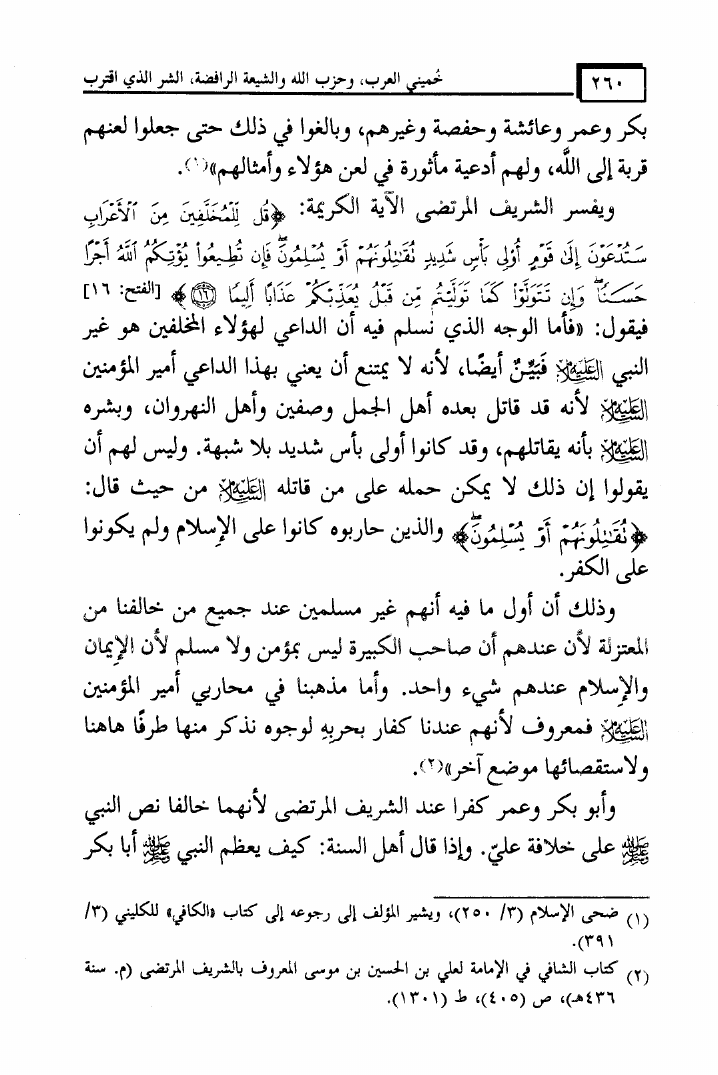 ٢٦٠
خُميني العرب، وحزب الله والشيعة الرافضة، الشر الذي اقترب
بكر وعمر وعائشة وحفصة وغيرهم، وبالغوا في ذلك حتى جعلوا لعنهم
قربة إلى اللَّه، ولهم أدعية مأثورة في لعن هؤلاء وأمثالهم»(١).
ويفسر الشريف المرتضى الآية الكريمة: ﴿قُل لِّلْمُخَلَّفِينَ مِنَ ٱلْأَعْرَابِ
سَتُدْعَوْنَ إِلَىٰ قَوْمٍ أُوْلِى بَأْسٍ شَدِيدٍ تُقَٰتِلُونَهُمْ أَوْ يُسْلِمُونَۖ فَإِن تُطِيعُوا۟ يُؤْتِكُمُ ٱللَّهُ أَجْرًا
حَسَنًاۖ وَإِن تَتَوَلَّوْا۟ كَمَا تَوَلَّيْتُم مِّن قَبْلُ يُعَذِّبْكُمْ عَذَابًا أَلِيمًا ﴿١٦﴾﴾ [الفتح: ١٦]
فيقول: «فأما الوجه الذي نسلم فيه أن الداعي لهؤلاء المخلفين هو غير
النبي عليه السلام فَبَيِّنٌ أيضًا، لأنه لا يمتنع أن يعني بهذا الداعي أمير المؤمنين
عليه السلام لأنه قد قاتل بعده أهل الجمل وصفين وأهل النهروان، وبشره
عليه السلام بأنه يقاتلهم، وقد كانوا أولى بأس شديد بلا شبهة. وليس لهم أن
يقولوا إن ذلك لا يمكن حمله على من قاتله عليه السلام من حيث قال:
﴿تُقَٰتِلُونَهُمْ أَوْ يُسْلِمُونَۖ﴾ والذين حاربوه كانوا على الإسلام ولم يكونوا
على الكفر.
وذلك أن أول ما فيه أنهم غير مسلمين عند جميع من خالفنا من
المعتزلة لأن عندهم أن صاحب الكبيرة ليس بمؤمن ولا مسلم لأن الإيمان
والإسلام عندهم شيء واحد. وأما مذهبنا في محاربي أمير المؤمنين
عليه السلام فمعروف لأنهم عندنا كفار بحربِهِ لوجوه نذكر منها طرفًا هاهنا
ولاستقصائها موضع آخر»(٢).
وأبو بكر وعمر كفرا عند الشريف المرتضى لأنهما خالفا نص النبي
ﷺ على خلافة عليّ. وإذا قال أهل السنة: كيف يعظم النبي ﷺ أبا بكر
(١) ضحى الإسلام (٣/ ٢٥٠)، ويشير المؤلف إلى رجوعه إلى كتاب «الكافي» للكليني (٣/
٣٩١).
(٢) كتاب الشافي في الإمامة لعلي بن الحسين بن موسى المعروف بالشريف المرتضى (م. سنة
٤٣٦هـ)، ص (٤٠٥)، ط (١٣٠١).